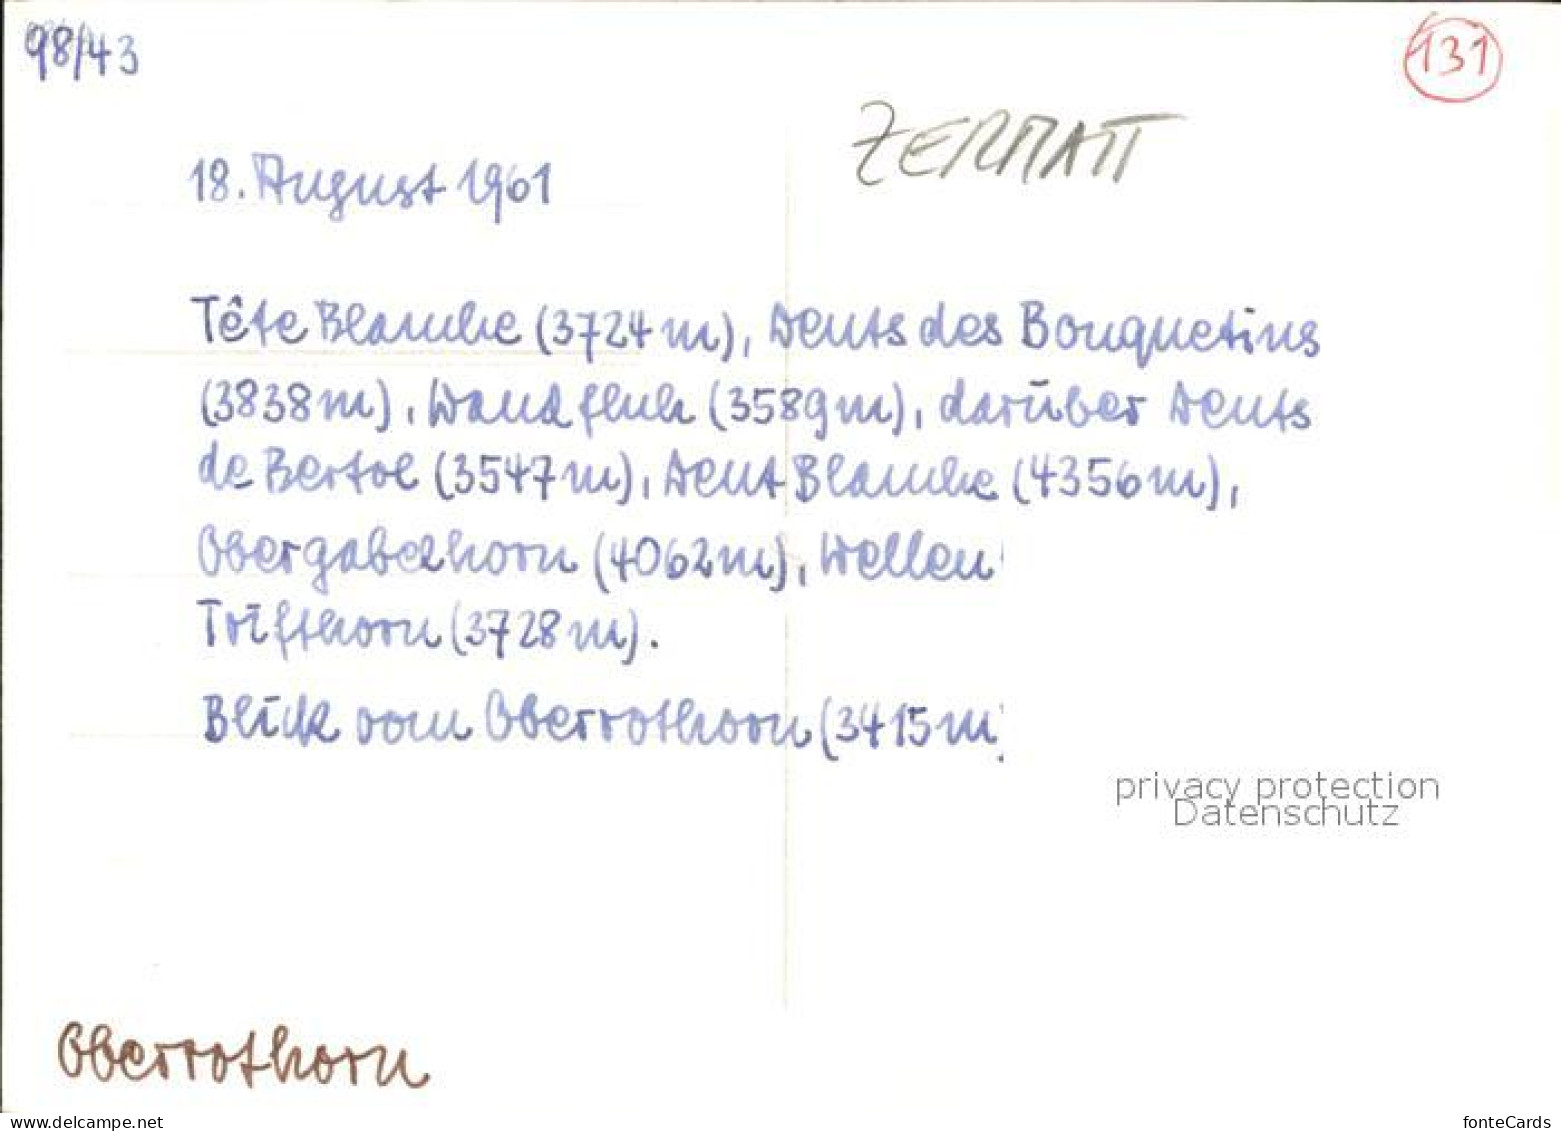 98/43
131
ZERMATT
18. August 1961
Tête Blanche (3724m), Dents des Bouquetins
(3838m), Wandfluh (3589m), darüber Dents
de Bertol (3547m), Dent Blanche (4356m),
Obergabelhorn (4062m), Wellen
Trifthorn (3728m).
Blick vom Oberrothorn (3415m
privacy protection
Datenschutz
Oberrothorn
www.delcampe.net
fonteCards